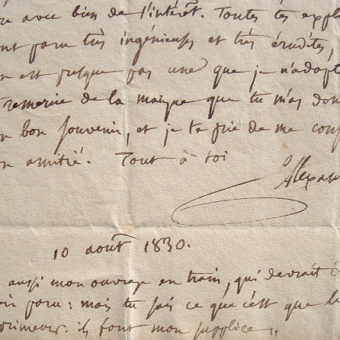 re avec bien de l'intérêt. Toutes tes expli
ont paru très ingénieuses et très érudites,
n est presque pas une que je n'adopte
remercie de la marque que tu m'as don
n bon souvenir, et je te prie de me cons
on amitié. Tout à toi
Alexan
10 août 1830.
aussi mon ouvrage en train, qui devrait ê
oir paru: mais tu sais ce que c'est que le
primeurs: ils font mon supplice